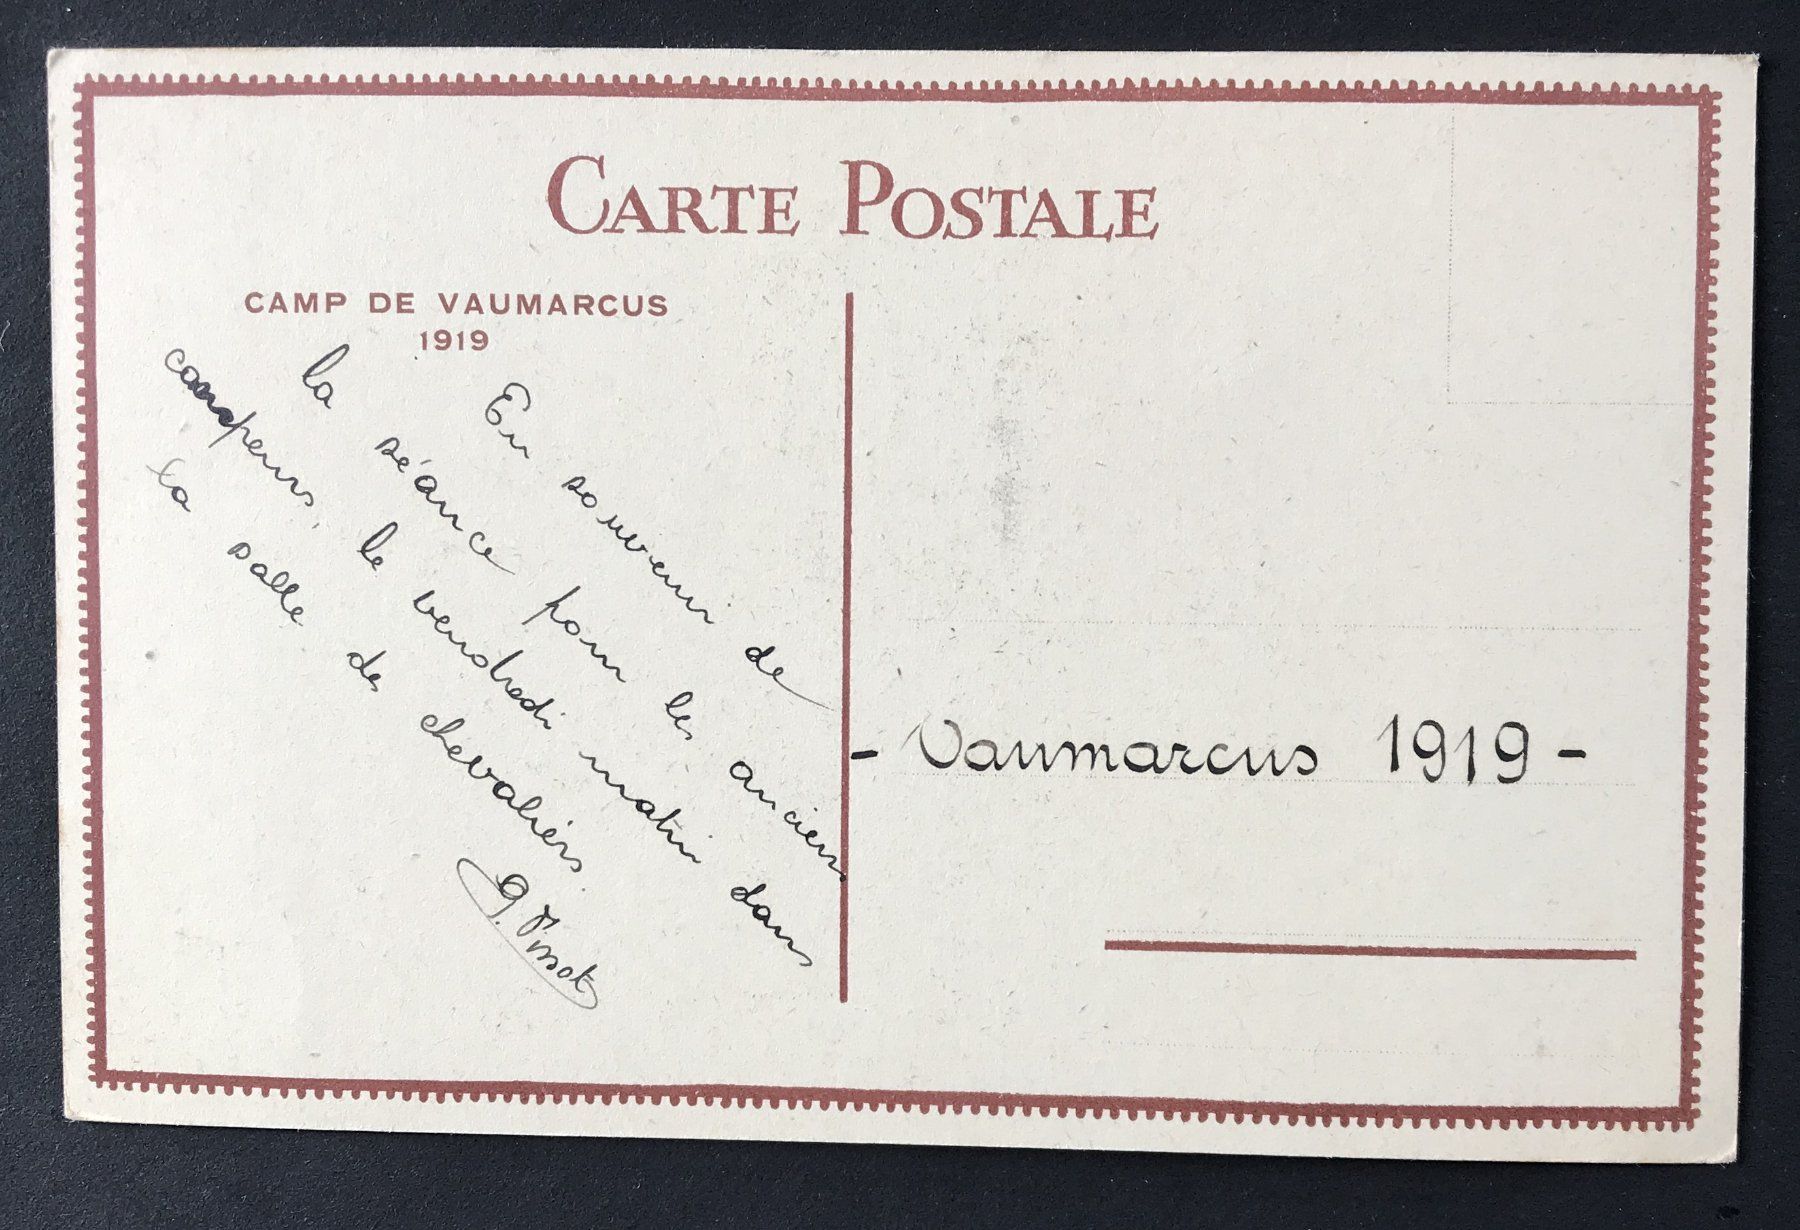 CARTE POSTALE
CAMP DE VAUMARCUS
1919
En souvenir de
la séance pour les anciens
campeurs, le vendredi matin dans
la salle des chevaliers
- Vaumarcus 1919 -